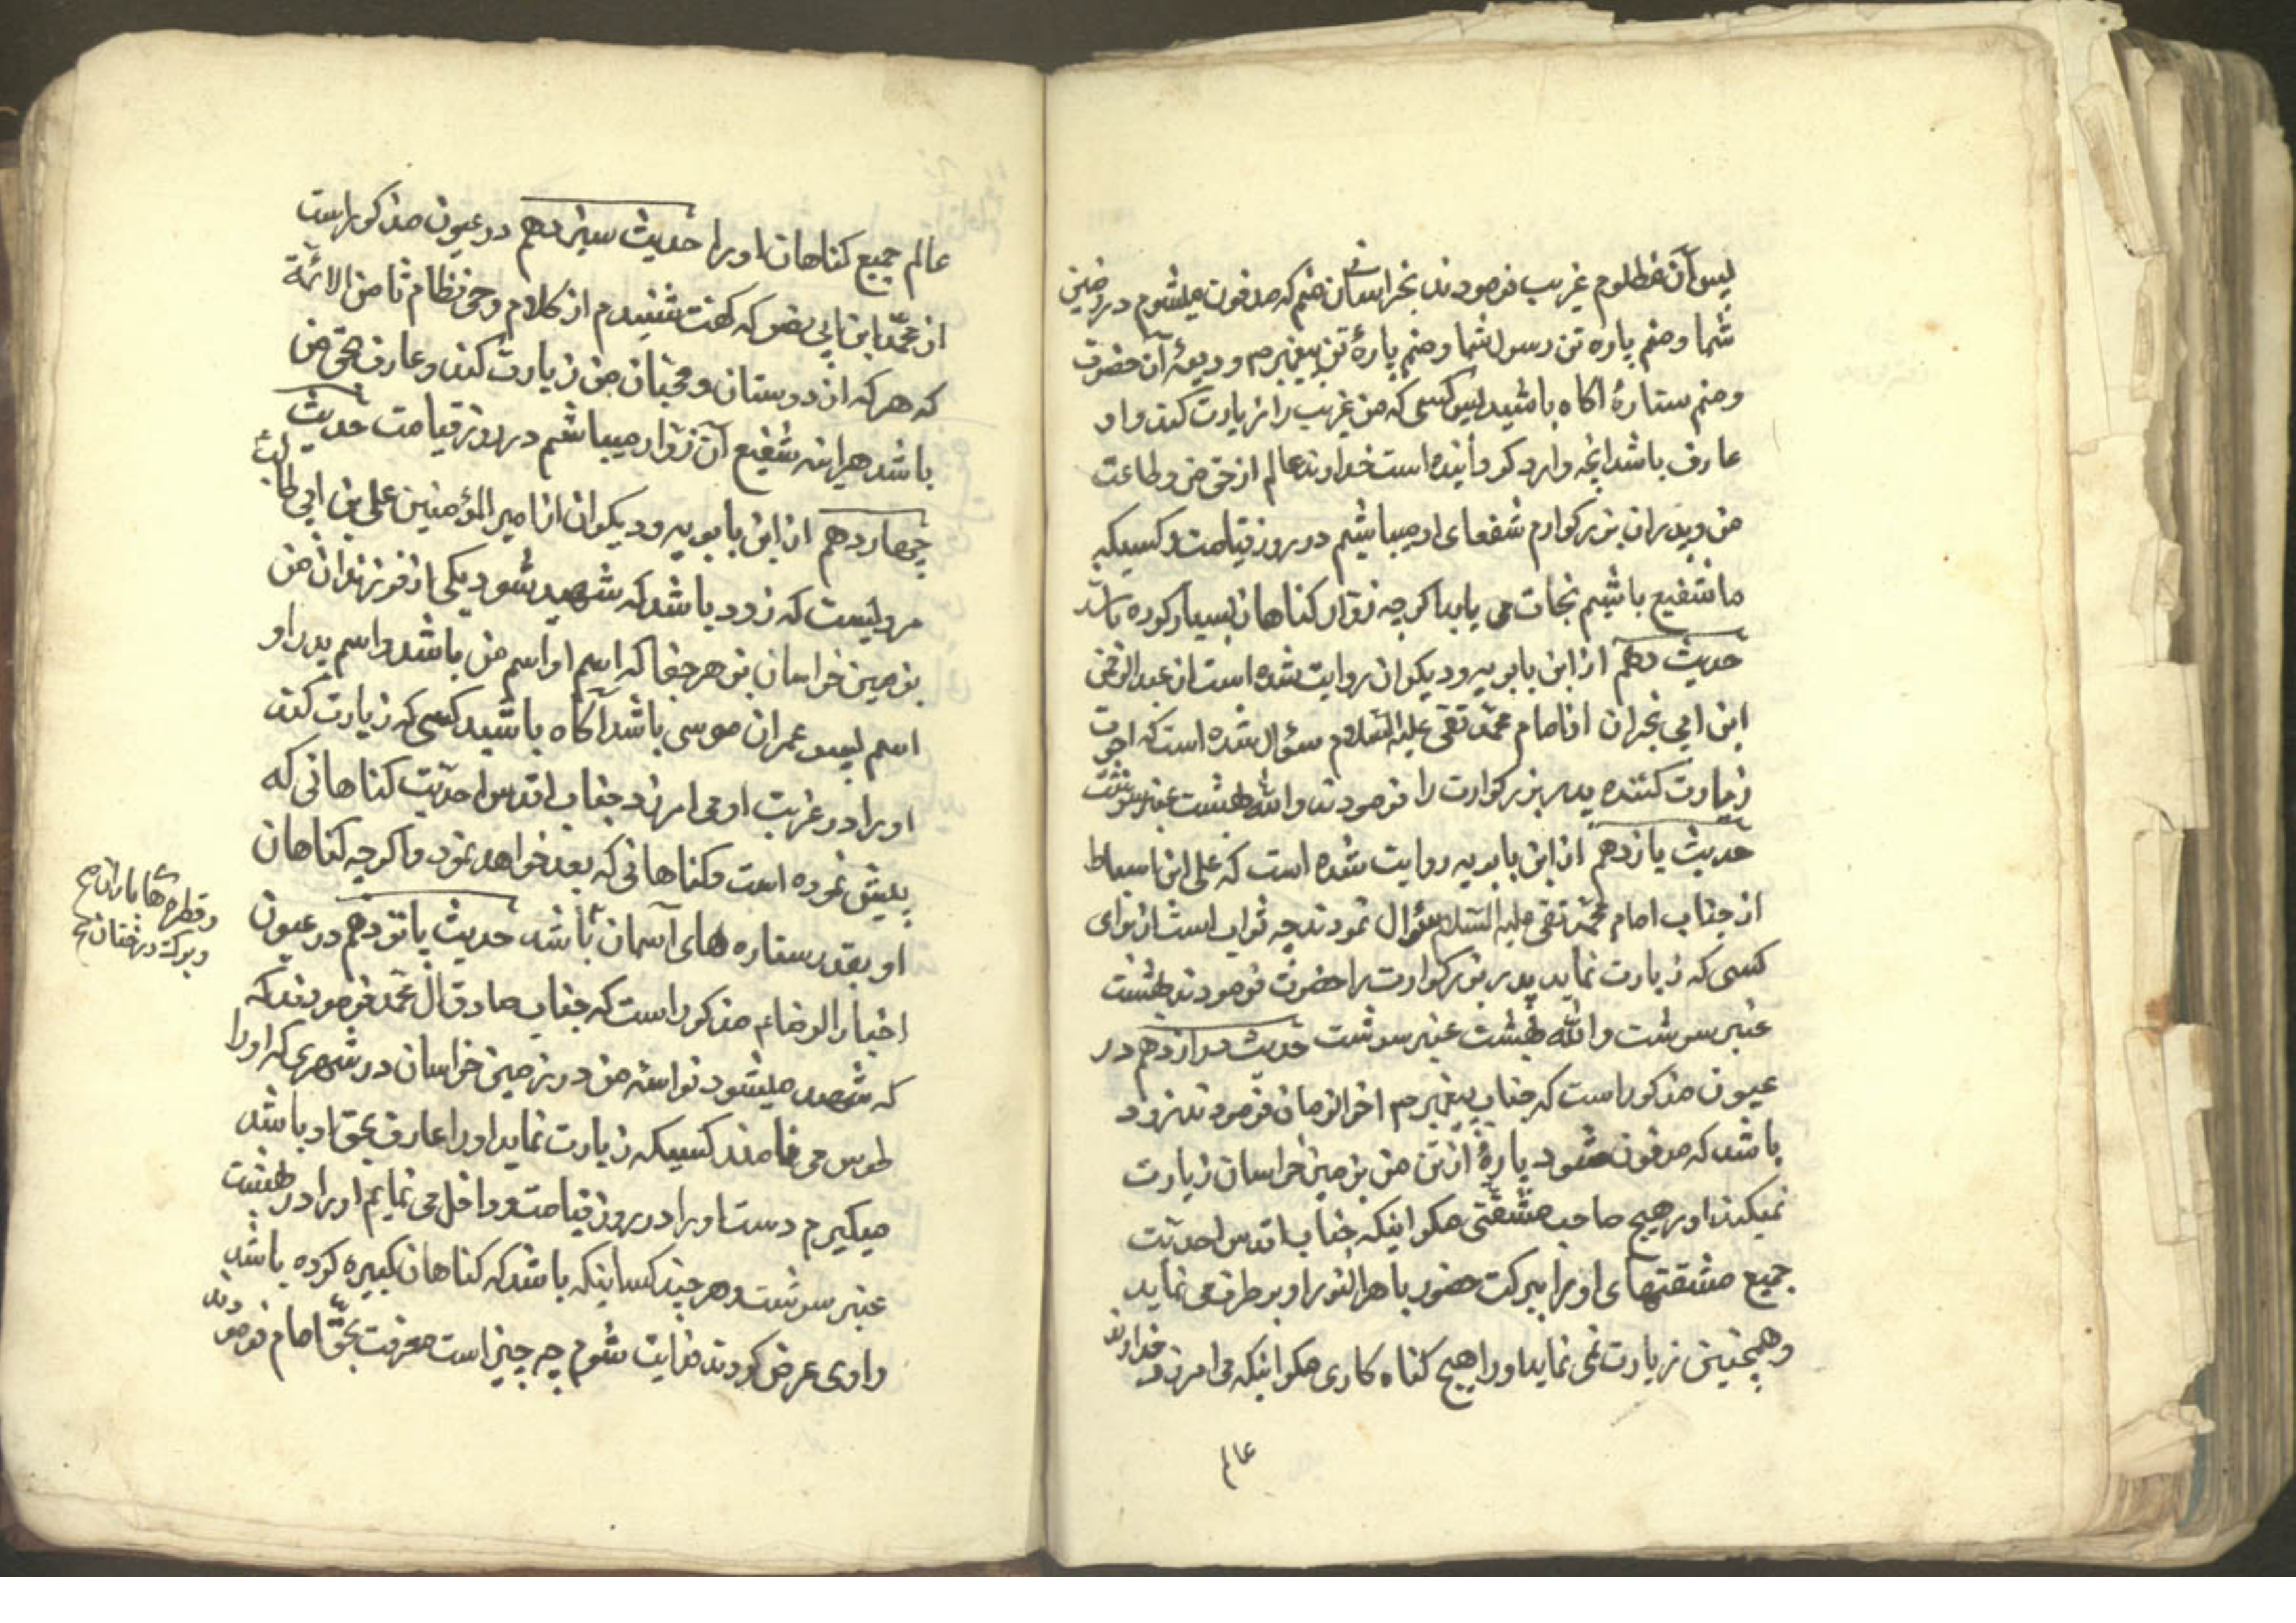 پس آن مظلوم غریب فرمودند بخراسان منم که مدفون میشوم در زمین
شما و منم پاره تن رسول شما و منم پارهٔ تن پیغمبرم و ودیعهٔ آن حضرت
و منم ستارهٔ اکاه باشید پس کسی که من غریب را زیارت کند و او
عارف باشد انچه وارد کردانیده است خداوند عالم از حق من و طاعت
من و پدران بزرکوارم شفعای او میباشیم در روز قیامت و کسیکه
ما شفیع باشیم نجات می یابد اکرچه زوار کناهان بسیار کرده باشد
حدیث دهم از ابن بابویه و دیکران روایت شده است از عبدالرحمن
ابن ابی نجران از امام محمد تقی علیه السلام سؤال شده است که اجرت
زیارت کننده پدر بزرکوارت را فرمودند والله بهشت عنبر سرشت
حدیث یازدهم از ابن بابویه روایت شده است که علی ابن اسباط
از جناب امام محمد تقی علیه السلام سؤال نمودند چه ثواب است از برای
کسی که زیارت نماید پدر بزرکوارت را حضرت فرمودند بهشت
عنبر سرشت والله بهشت عنبر سرشت حدیث دوازدهم در
عیون مذکور است که جناب پیغمبرم اخرالزمان فرمودند زود
باشد که مدفون شود پارهٔ از تن من بزمین خراسان زیارت
نمیکند او را هیچ صاحب مشقتی مکر اینکه جناب اقدس احدیت
جمیع مشقتهای او را ببرکت حضور باهر النور او برطرف می نماید
و همچنین زیارت نمی نماید او را هیچ کناه کاری مکر اینکه می امرزد خداوند
عالم
عالم جمیع کناهان او را حدیث سیزدهم در عیون مذکور است
از محمد ابن ابی نصر که کفت شنیدم از کلام وحی نظام ثامن الائمة
که هر که از دوستان و محبان من زیارت کند و عارف بحق من
باشد هراینه شفیع آن زوار میباشم در روز قیامت حدیث
چهاردهم از ابن بابویه و دیکران از امیر المؤمنین علی بن ابی طالب
مرویست که زود باشد که شهید شود یکی از فرزندان من
بزمین خراسان بزهر جفا که اسم او اسم من باشد و اسم پدر او
اسم پسر عمران موسی باشد آکاه باشید کسی که زیارت کند
او را در غربت او می امرزد جناب اقدس احدیت کناهانی که
پیش نموده است و کناهانی که بعد خواهد نمود و اکرچه کناهان
او بقدر ستاره های آسمان باشد حدیث پانزدهم در عیون
و قطره های باران
و برک درختان
اخبار الرضا مذکور است که جناب صادق آل محمد فرمودند که
که شهید میشود نواسه من در زمین خراسان در شهری که او را
طوس می نامند کسیکه زیارت نماید او را عارف بحق او باشد
میکیرم دست او را در روز قیامت و داخل می نمایم او را در بهشت
عنبر سرشت و هر چند کسا اینکه باشد که کناهان کبیره کرده باشد
راوی عرض کردند فدایت شوم چه چیز است معرفت بحق امام فرمودند